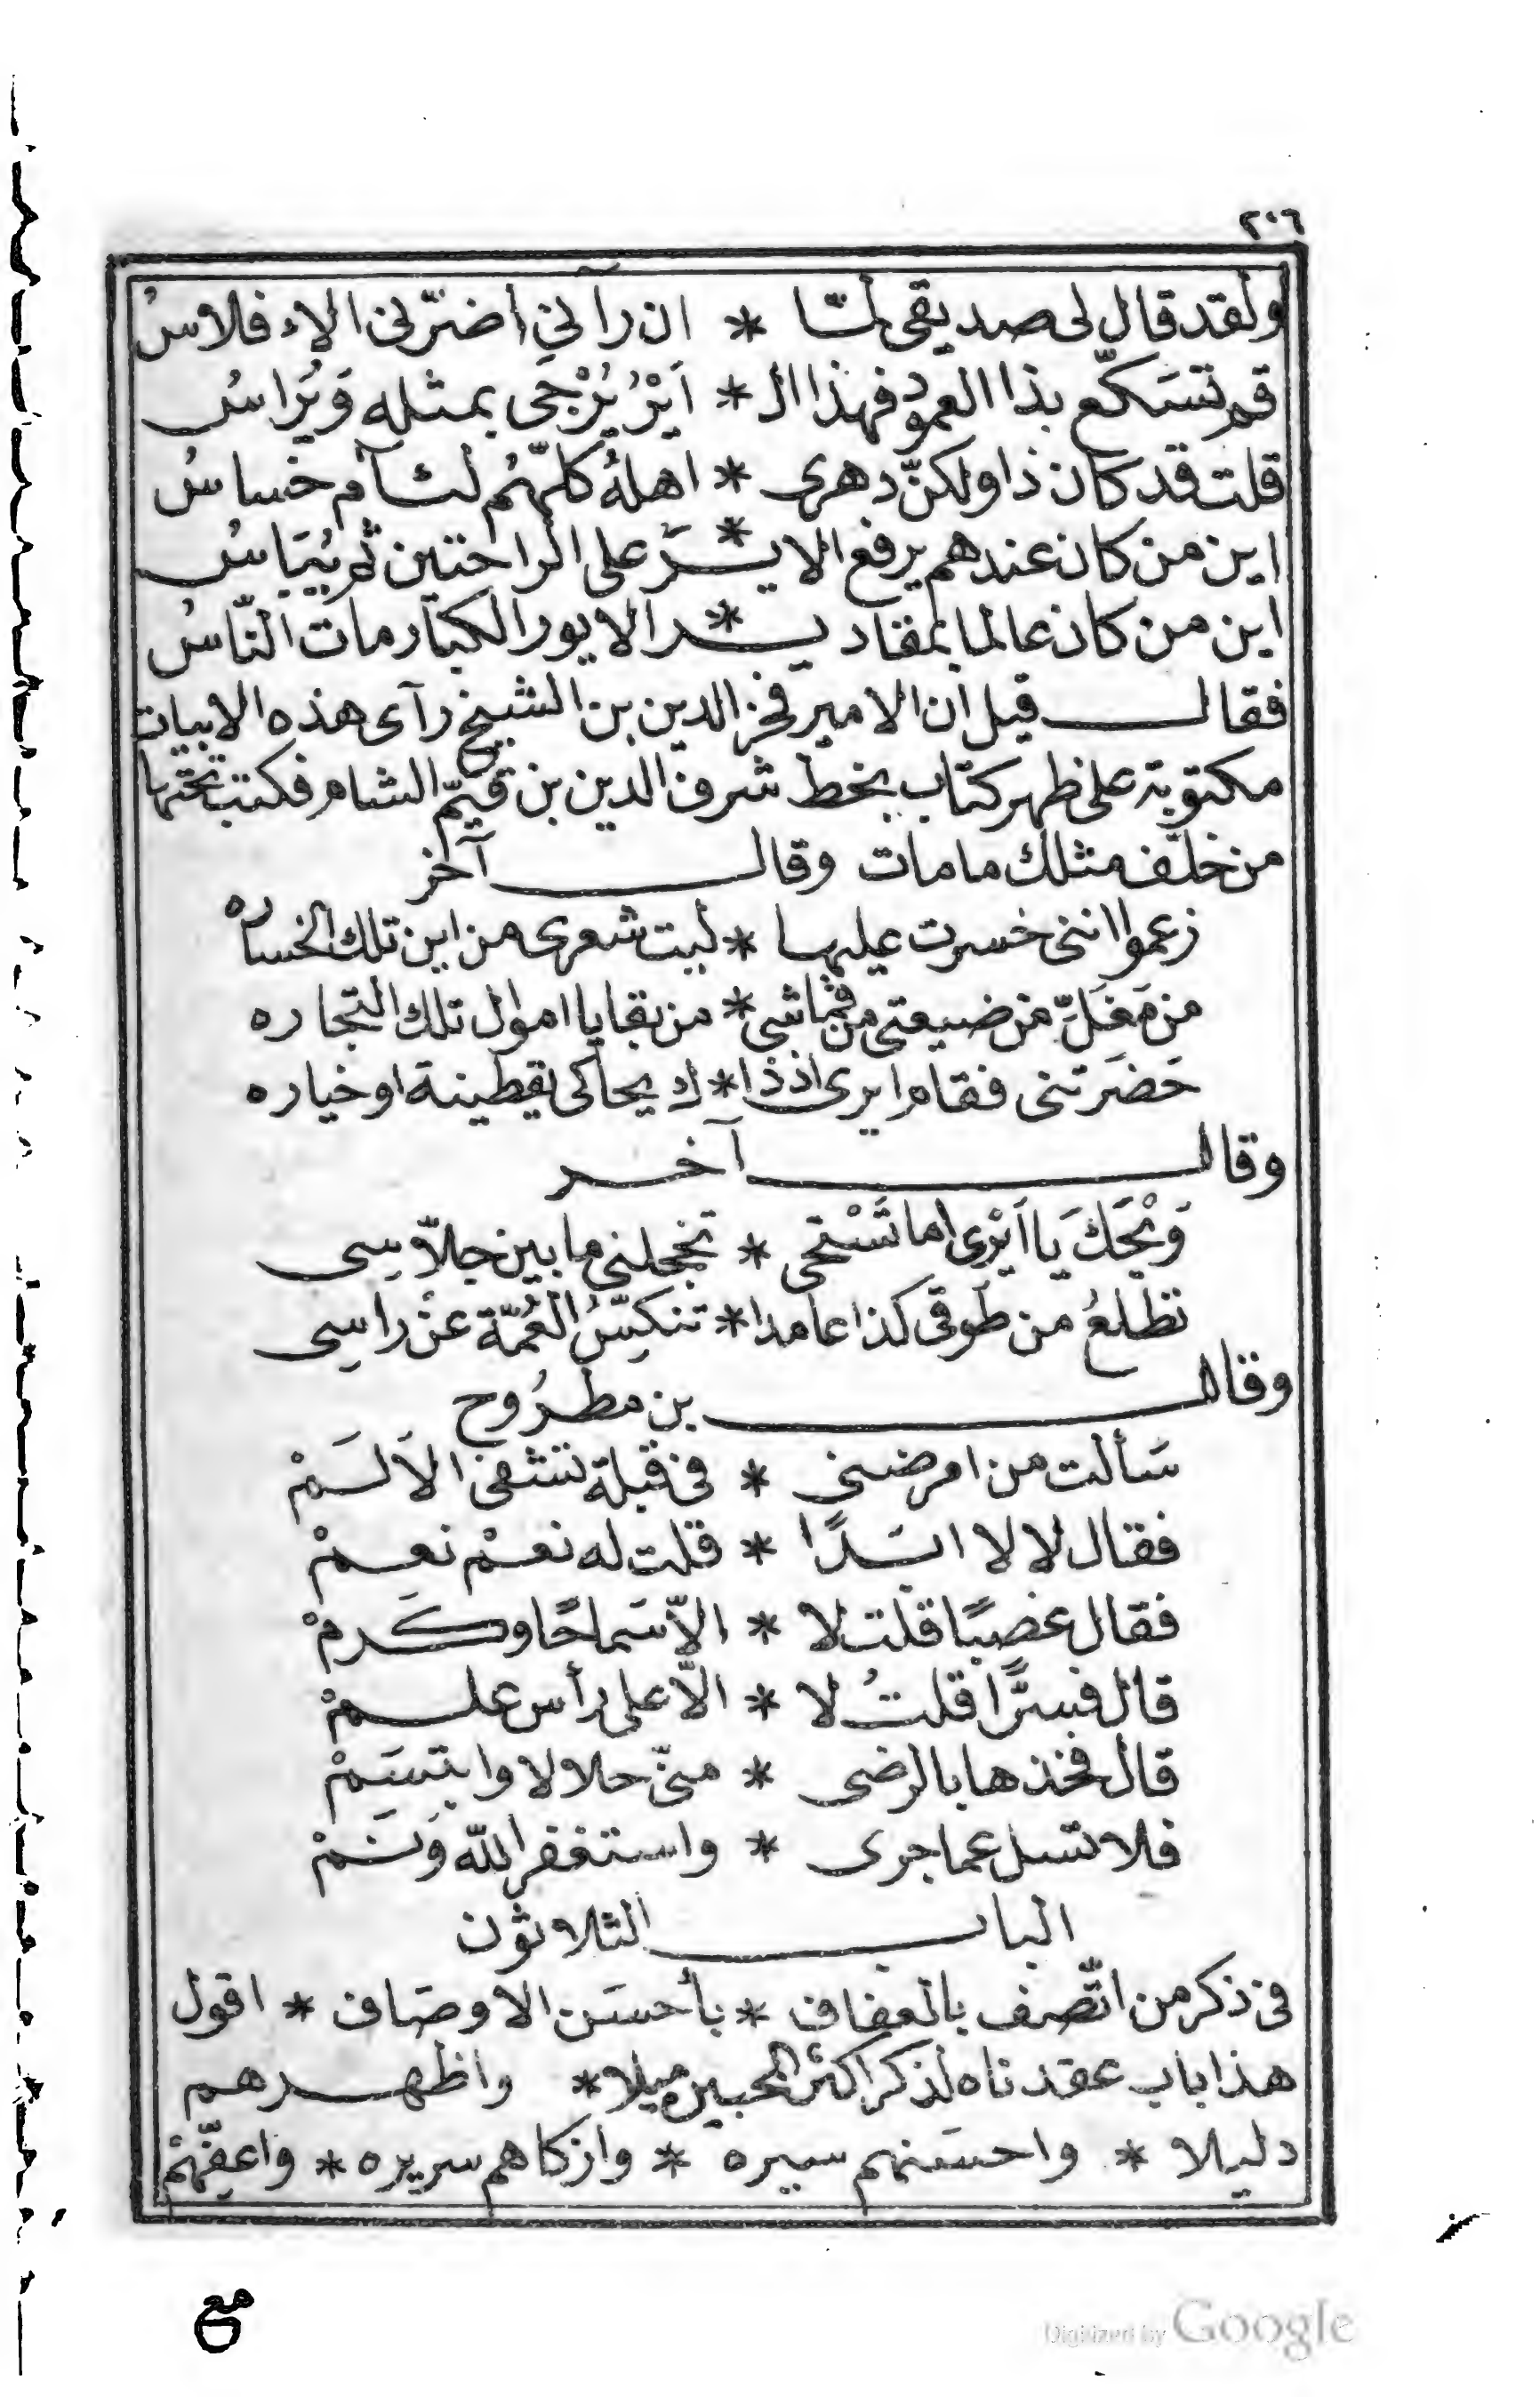 ٢٠٦
ولقد قال لى صديقى لمّا * ان رآنى اضرّنى الافلاسُ
قم تسَكّع بذا العمود فهذا الـ * اَيْرُ يُرْجَى بمثله وَيُرَاسُ
قلت قد كان ذا ولكنّ دهرى * اهلهُ كلّهُم لئآم خساسُ
اين من كان عندهم يرفع الايـ * ـرَ على الراحتين ثم يُبَاسُ
اين من كان عالما بمقاديـ * ـر الايور الكبار مات النّاسُ
فقال قيل ان الامير فخر الدين بن الشيخ رآى هذه الابيات
مكتوبة على ظهر كتاب بخط شرف الدين بن قيّم الشام فكتب تحتها
من خلّف مثلك ما مات وقال آخر
زعموا اننى خسرت عليها * ليت شعرى من اين تلك الخساره
من مَغَلِّ من ضيعتى من قماشى * من بقايا اموال تلك التجاره
حَضَرتنى فقام ايرى اذذا * ك يحاكى يقطينة او خياره
وقال آخر
وَيْحَكَ يا اَيْرى اما تَسْتحى * تخجلنى ما بين جلاّسى
تطلعُ من طَوقى كذا عامدا * تنكِّسُ العُمّة عنْ راسِى
وقال بن مطرُوح
سَألت من امرضنى * فى قبلة تشفى الاَلَمْ
فقال لا لا ابَدًا * قلت له نعمْ نعمْ
فقال غصبًا قلت لا * الاّ سَماحًا وكَرمْ
قال فسرًّا قلتُ لا * الاّ على رأس علمْ
قال فخذها بالرضى * منىّ حلالا وابتسَمْ
فلا تسل عما جرى * واستغفر الله وَنَمْ
الباب الثلاثون
فى ذكر من اتّصف بالعفاف * بأحسَن الاوصَاف * اقول
هذا باب عقدناه لذكر اكثر المحبين ميلا * واظهرهم
دليلا * واحسَنهم سيره * وازكاهم سريره * واعفّهمْ
مع
Digitized by Google